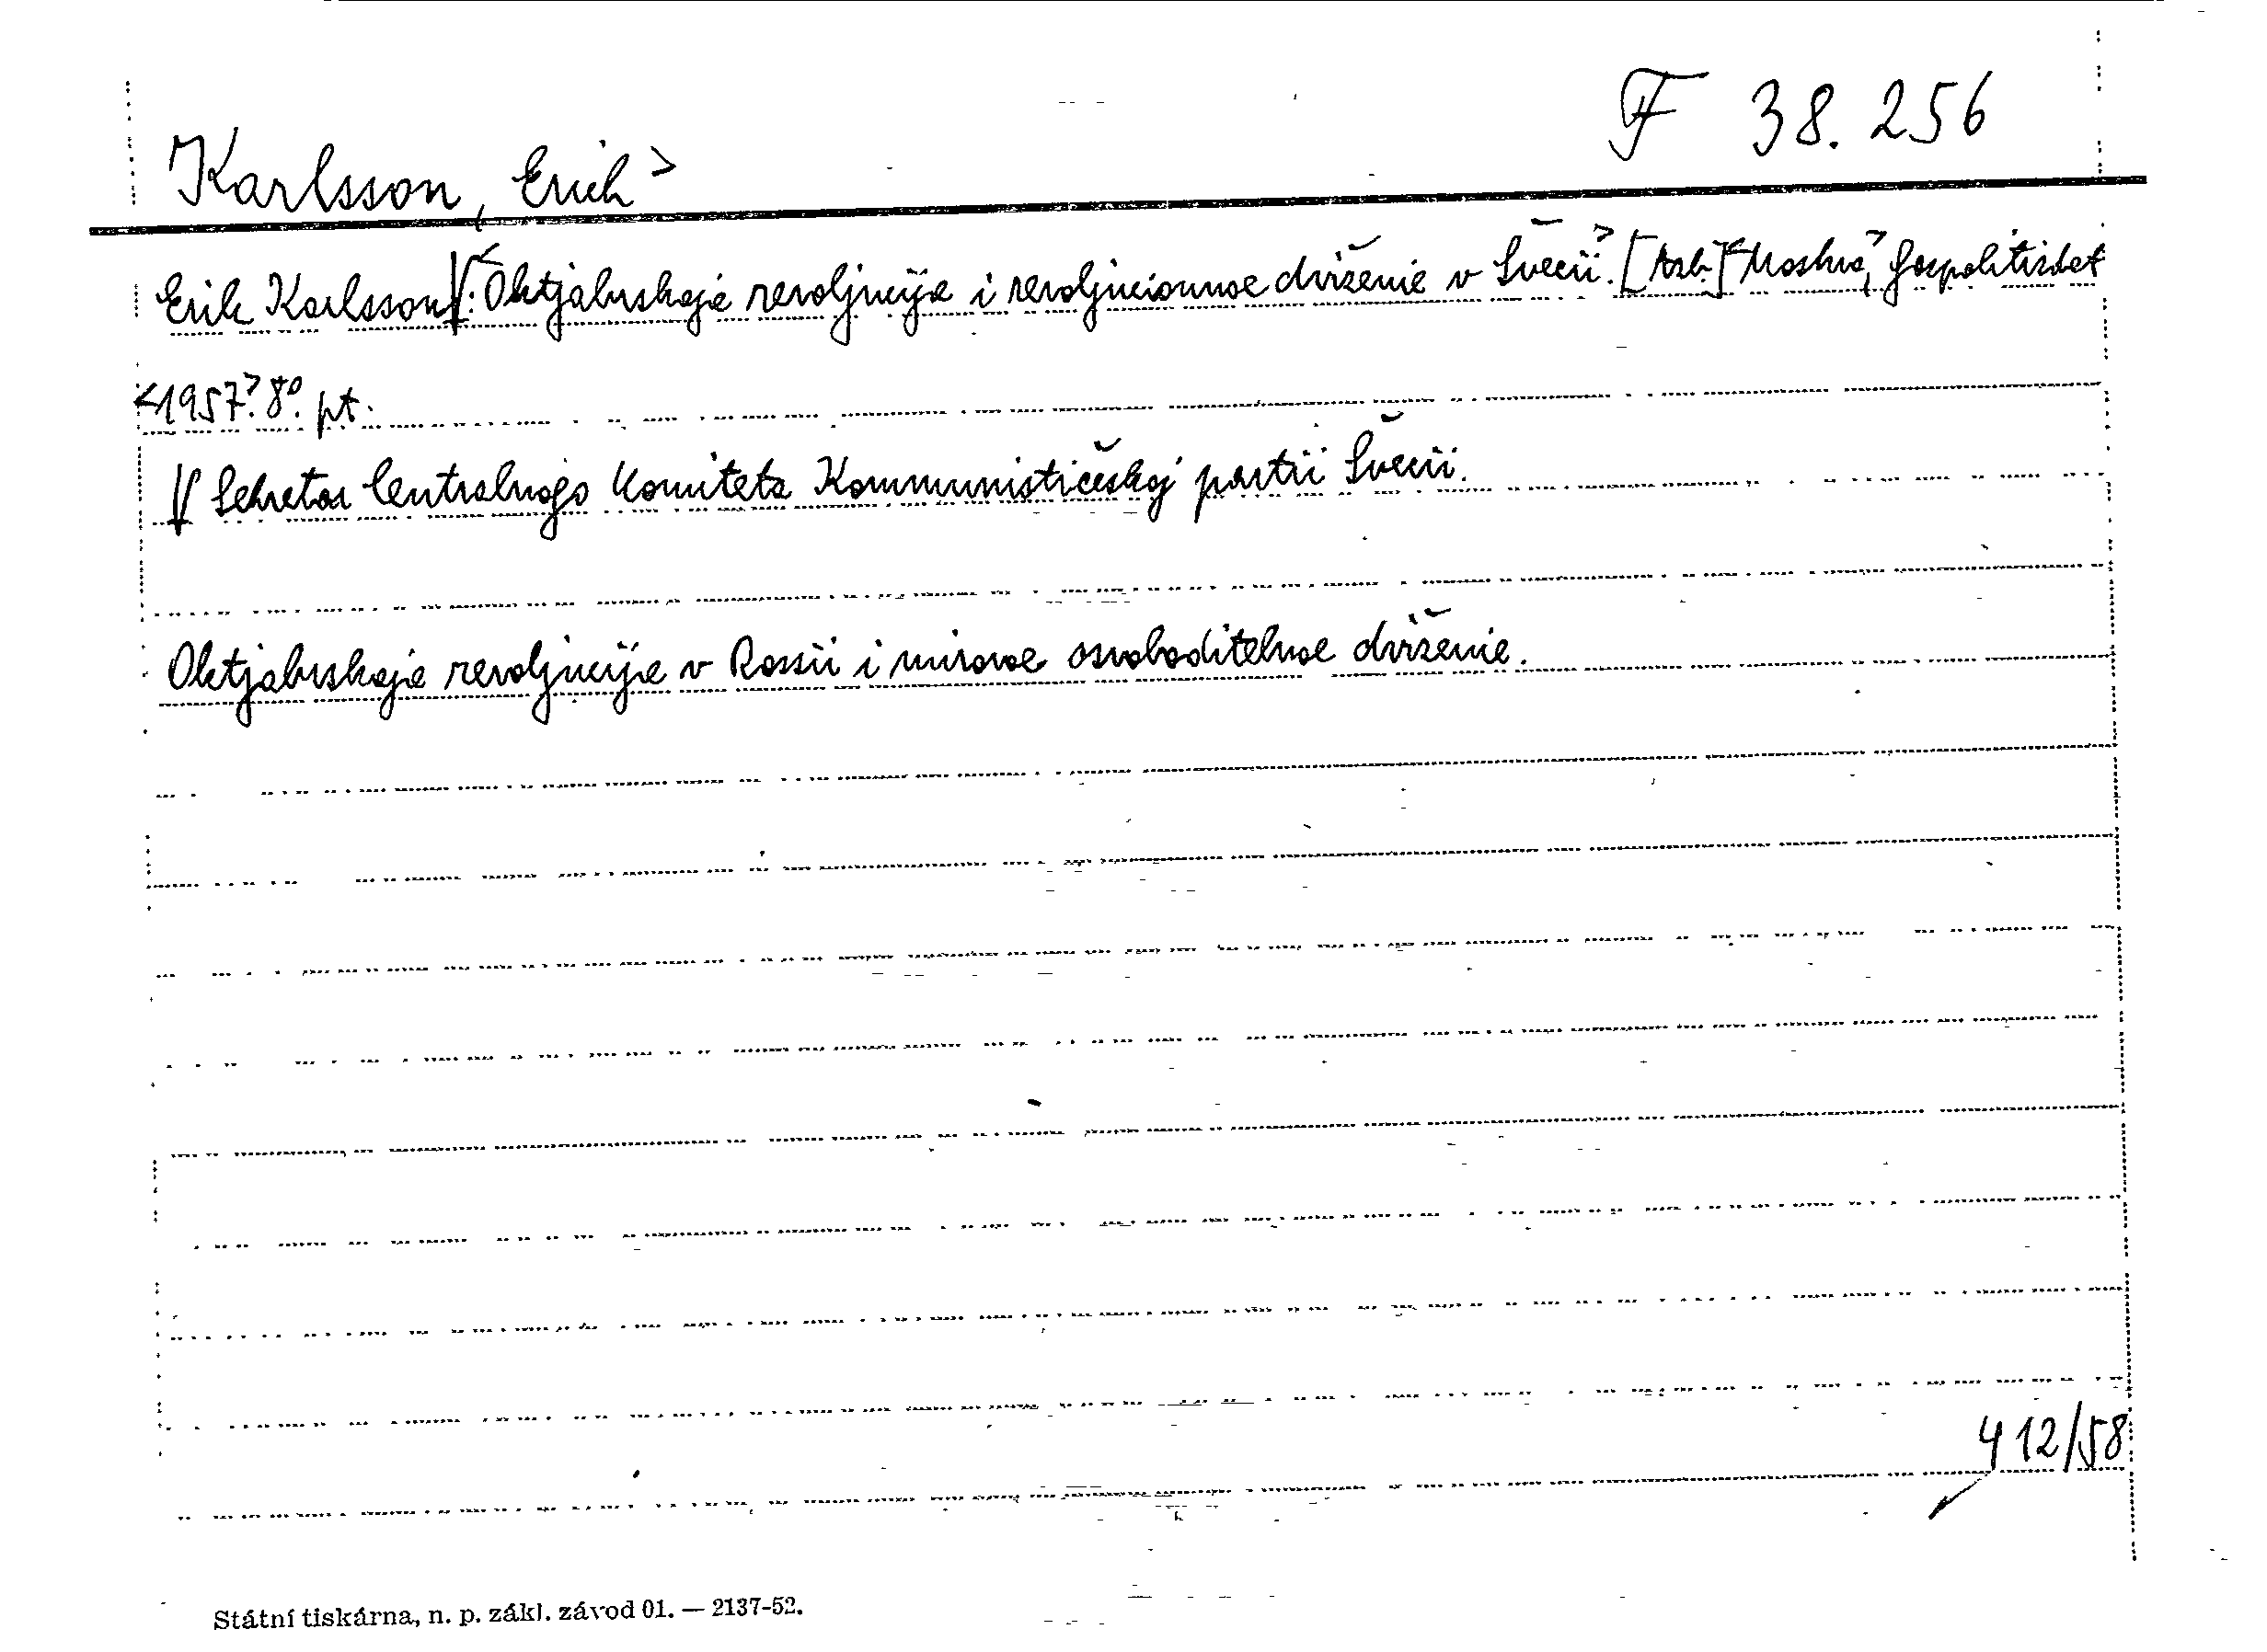 F 38.256
Karlsson, Erich>
Erik Karlsson : <Oktjabrskaja revoljucija i revoljucionnoe dviženie v Švecii>. [Azb.] <Moskva>, Gospolitizdat
<1957>. 8°. pt.
Sekretar Centralnogo Komiteta Kommunističeskoj partii Švecii.
Oktjabrskaja revoljucija v Rossii i mirovoe osvoboditelnoe dviženie.
412/58
Státní tiskárna, n. p. zákl. závod 01. — 2137-52.